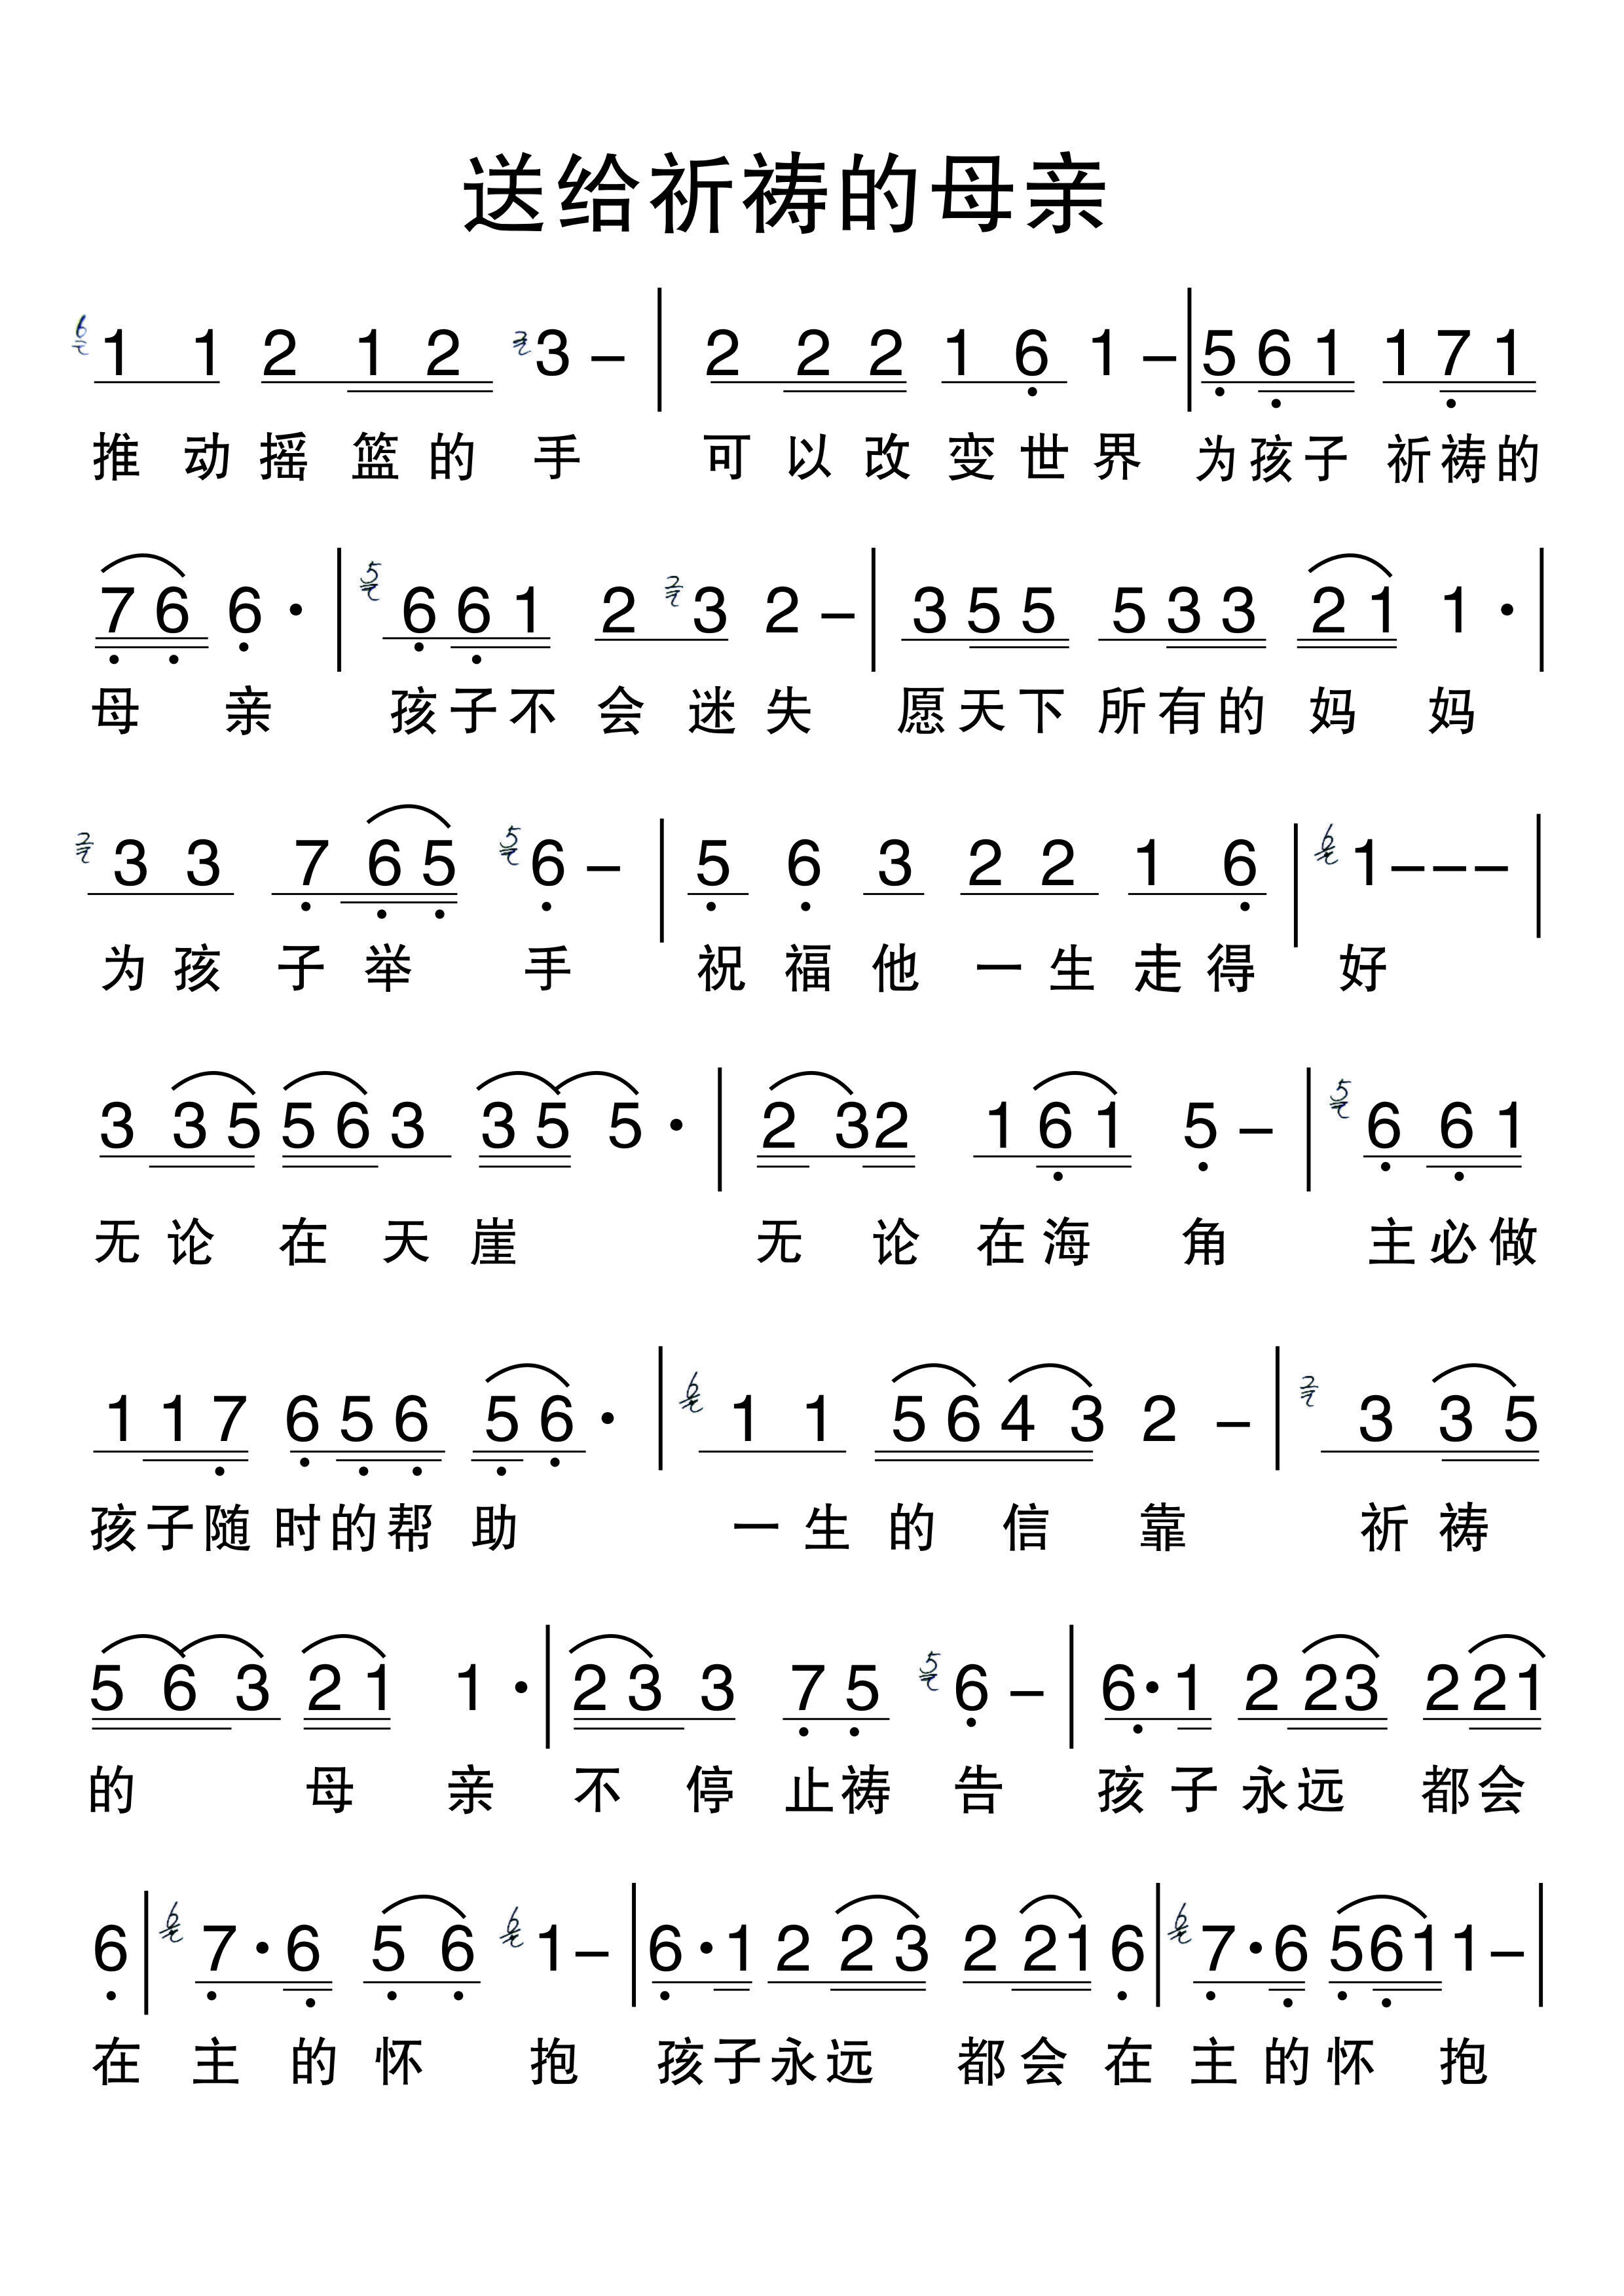 送给祈祷的母亲
6 1 1 2 1 2 2 3 – | 2 2 2 1 6 1 – | 5 6 1 1 7 1
推动摇篮的手 可以改变世界 为孩子祈祷的
7 6 6 · | 5 6 6 1 2 2 3 2 – | 3 5 5 5 3 3 2 1 1 · |
母亲 孩子不会迷失 愿天下所有的妈妈
2 3 3 7 6 5 5 6 – | 5 6 3 2 2 1 6 | 6 1 – – – |
为孩子举手 祝福他一生走得好
3 3 5 5 6 3 3 5 5 · | 2 3 2 1 6 1 5 – | 5 6 6 1
无论在天崖 无论在海角 主必做
1 1 7 6 5 6 5 6 · | 6 1 1 5 6 4 3 2 – | 2 3 3 5
孩子随时的帮助 一生的信靠 祈祷
5 6 3 2 1 1 · | 2 3 3 7 5 5 6 – | 6 · 1 2 2 3 2 2 1
的母亲 不停止祷告 孩子永远都会
6 | 6 7 · 6 5 6 6 1 – | 6 · 1 2 2 3 2 2 1 6 | 6 7 · 6 5 6 1 1 – |
在主的怀抱 孩子永远都会在主的怀抱